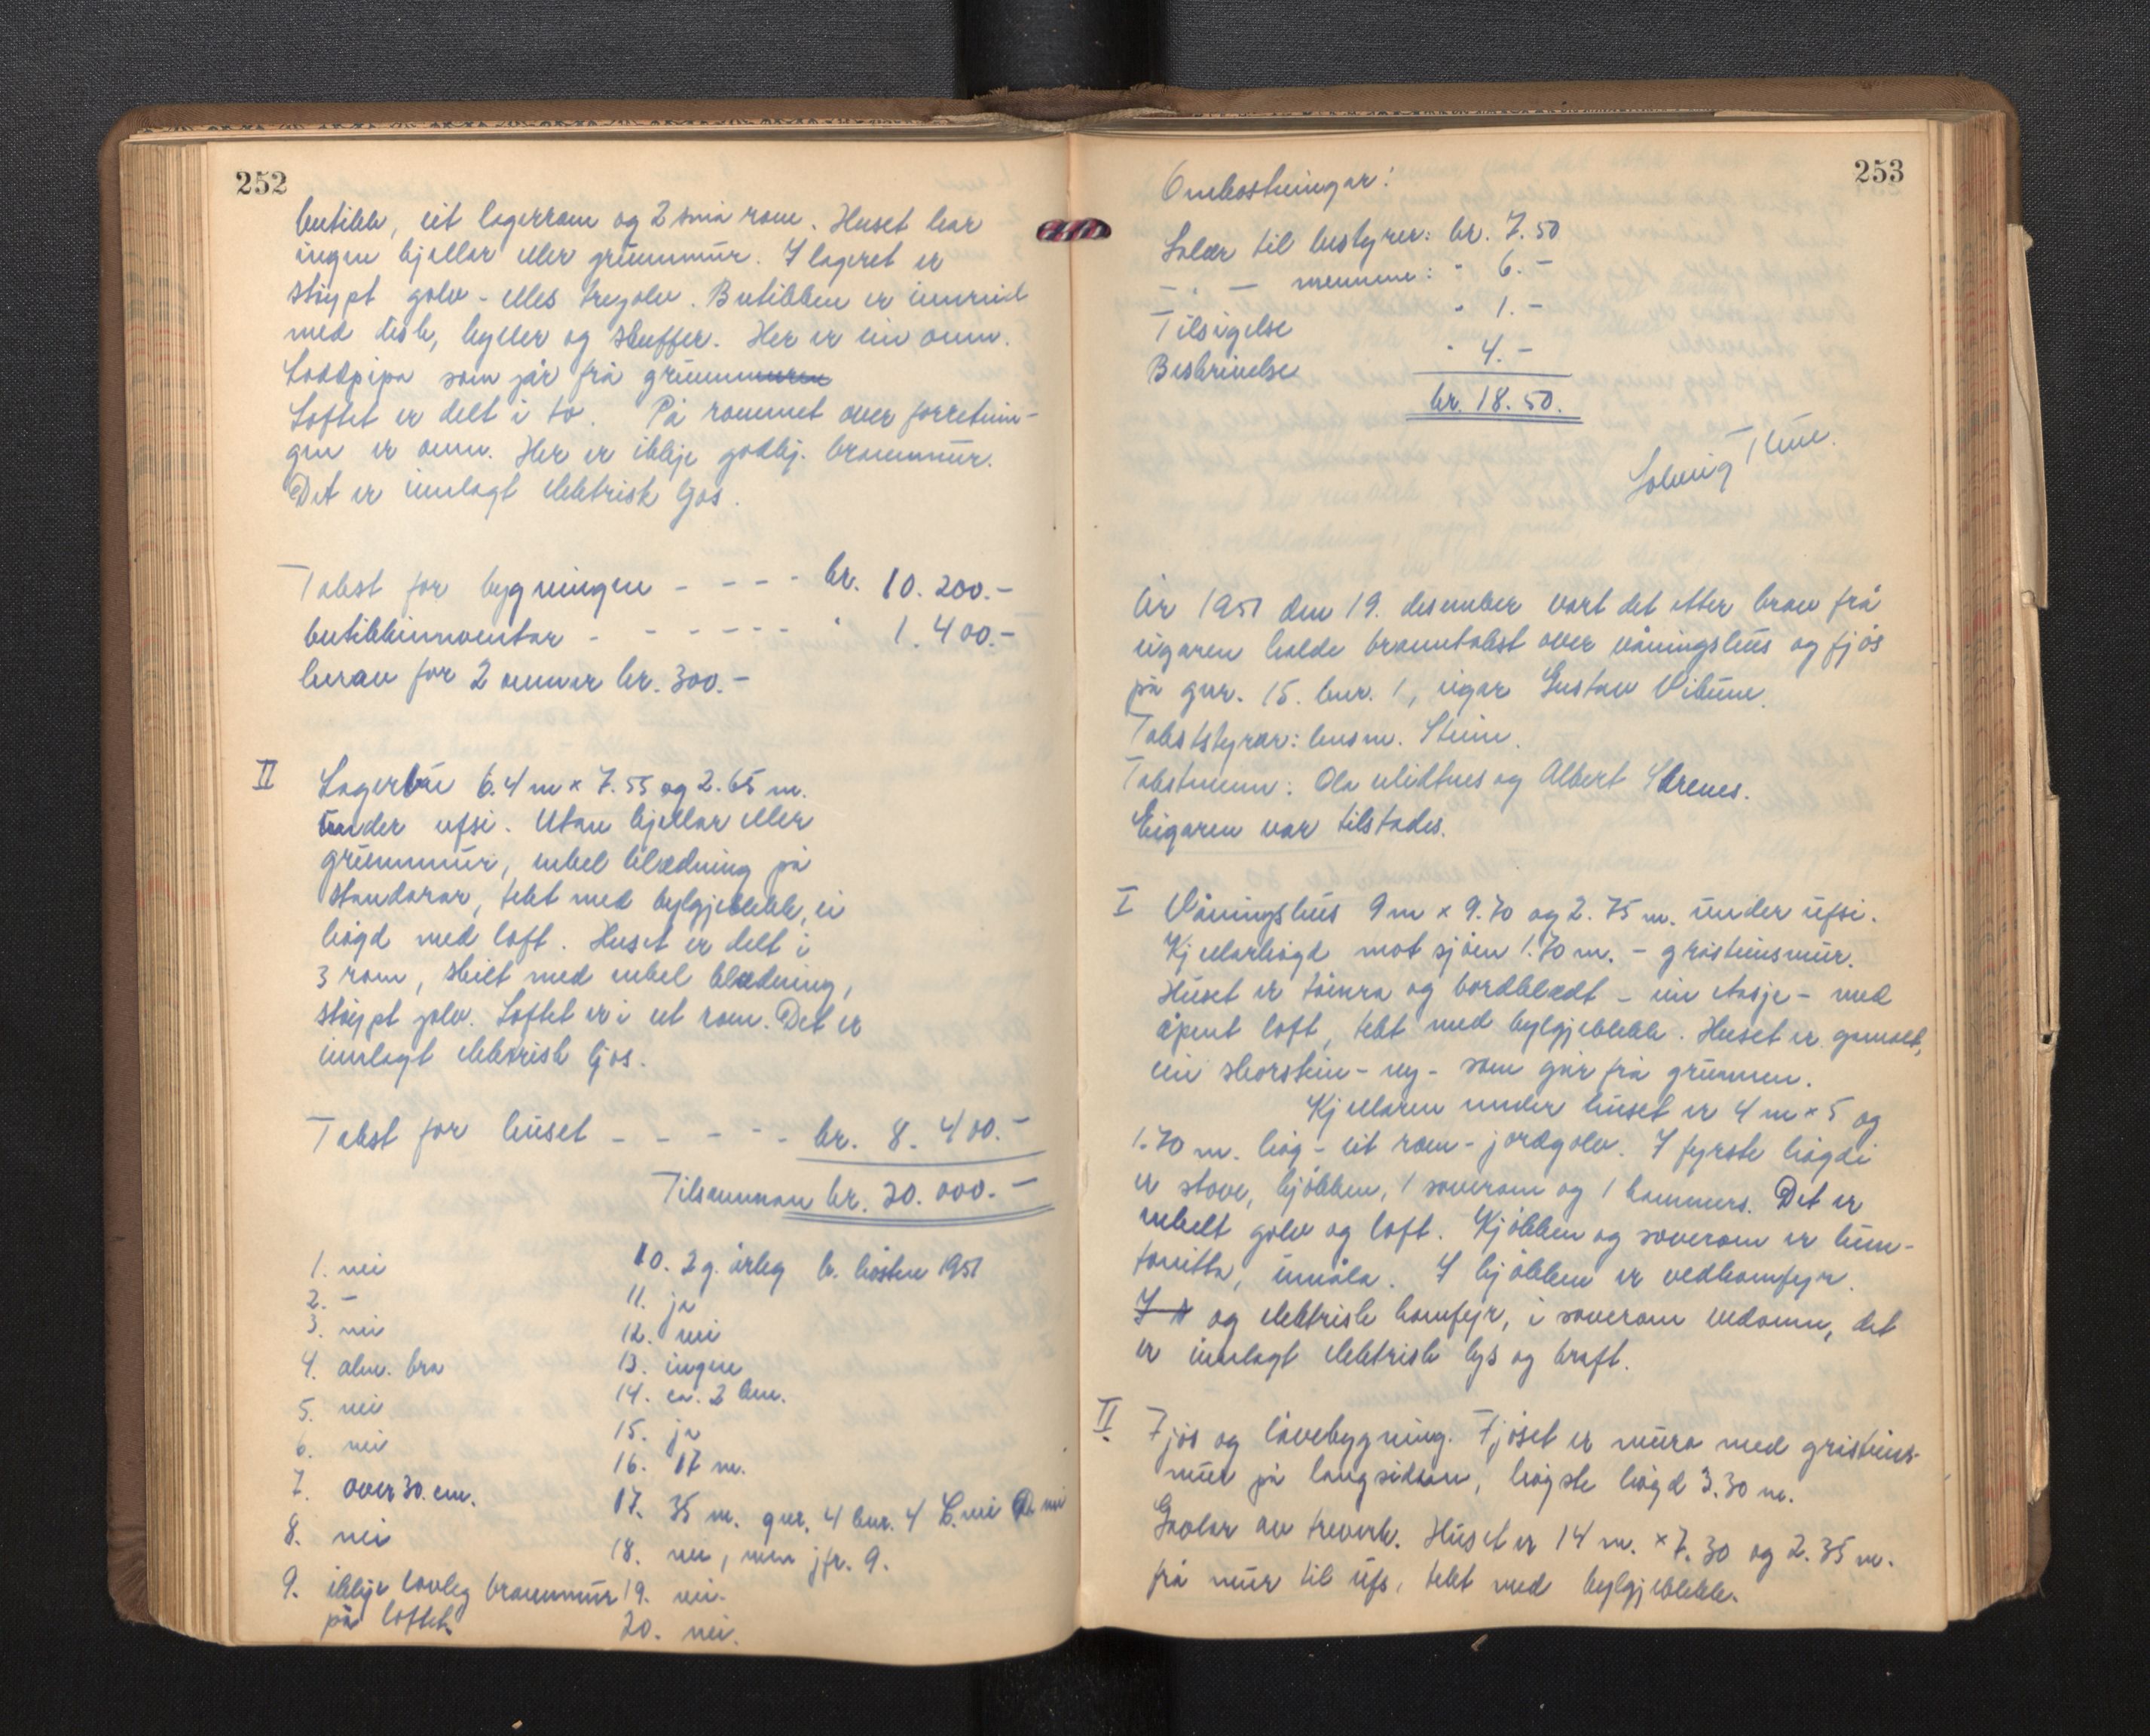 252
butikk, eit lagerrom og 2 små rom. Huset har
ingen kjellar eller grunnmur. I lageret er
støypt golv - elles tregolv. Butikken er innreid
med disk, hyller og skuffer. Her er ein omn.
Loddpipa som går frå grunnmuren
Loftet er delt i to. På rommet over forretnin-
gen er omn. Her er ikkje godkj. brannmur.
Det er innlagt elektrisk ljos.
Takst for bygningen - - - - kr. 10.200.-
butikkinnventar - - - - - - - " 1.400.-
herav for 2 omnar kr. 300.-
II
Lagerbu 6.4 m x 7.55 og 2.65 m.
under ufsi. Utan kjellar eller
grunnmur, enkel klædning på
standarar, tekt med bylgjeblekk, ei
høgd med loft. Huset er delt i
3 rom, skilt med enkel klædning,
støypt golv. Loftet er i eit rom. Det er
innlagt elektrisk ljos.
Takst for huset - - - - - kr. 8.400.-
Tilsamman kr. 20.000.-
1. nei
2. -
3. nei
4. alm. bra
5. nei
6. nei
7. over 30. cm.
8. nei
9. ikkje lovleg brannmur
på loftet.
10. 2 g. årleg h. hausten 1951
11. ja
12. nei
13. ingen
14. ca. 2 km.
15. ja
16. 17 m.
17. 35 m. gnr. 4 bnr. 4 C. nei D. nei
18. nei, men jfr. 9.
19. nei.
20. nei.
253
Omkostningar:
Salær til bestyrer: kr. 7.50
- " - mennene: " 6.-
Tilsigelse " 1.-
Beskrivelse " 4.-
kr. 18.50.
Solveig
År 1951 den 19. desember vart det etter krav frå
eigaren halde branntakst over våningshus og fjøs
på gnr. 15. bnr. 1, eigar Gustav Vikum.
Takststyrar: lensm. Steine.
Takstmenn: Ola Midtnes og Albert
Eigaren var tilstades.
I
Våningshus 9 m x 9.70 og 2.75 m. under ufsi.
Kjellarhøgd mot sjøen 1.70 m. - gråsteinsmur.
Huset er tømra og bordklædt - ein etasje - med
åpent loft, tekt med bylgjeblekk. Huset er gamalt,
ein skorstein - ny - som går frå grunnen.
Kjellaren under huset er 4 m x 5 og
1.70 m. høg - eit rom - jordgolv. I fyrste høgdi
er stove, kjøkken, 1 soverom og 1 kammers. Det er
enkelt golv og loft. Kjøkken og soverom er hun-
tonitta, unmåla. I kjøkken er vedkomfyr.
I s og elektrisk komfyr, i soverom vedomn, det
er innlagt elektrisk lys og kraft.
II
Fjøs og løebygning. Fjøset er mura med gråsteins-
mur på langsidom, høgste høgd 3.30 m.
Gavlar av treverk. Huset er 14 m. x 7.30 og 2.35 m.
frå mur til ufs, tekt med bylgjeblekk.